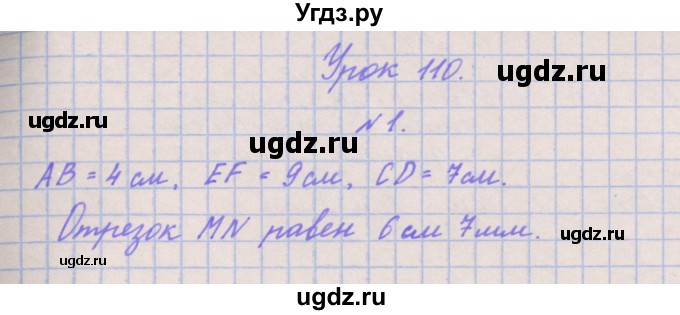 Угдз.ру
Урок 110.
ugdz.ru
ugdz.ru
ugdz.ru
№1.
AB = 4 см, EF = 9 см, CD = 7 см.
Отрезок MN равен 6 см 7 мм.
ugdz.ru
ugdz.ru
ugdz.ru